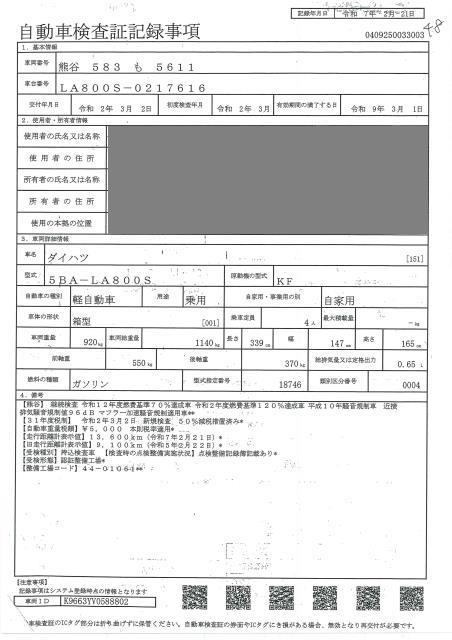 記録年月日 令和 7年 2月 21日
自動車検査証記録事項
0409250033003
1. 基本情報
車両番号 熊谷 583 も 5611
車台番号 LA800S-0217616
交付年月日 令和 2年 3月 2日 初度検査年月 令和 2年 3月 有効期間の満了する日 令和 9年 3月 1日
2. 使用者・所有者情報
使用者の氏名又は名称
使用者の住所
所有者の氏名又は名称
所有者の住所
使用の本拠の位置
3. 車両詳細情報
車名 ダイハツ [151]
型式 5BA-LA800S 原動機の型式 KF
自動車の種別 軽自動車 用途 乗用 自家用・事業用の別 自家用
車体の形状 箱型 [001] 乗車定員 4人 最大積載量 -kg
車両重量 920kg 車両総重量 1140kg 長さ 339cm 幅 147cm 高さ 165cm
前軸重 550kg 後軸重 370kg 総排気量又は定格出力 0.65 L
燃料の種類 ガソリン 型式指定番号 18746 類別区分番号 0004
4. 備考
【熊谷】 継続検査 令和12年度燃費基準70%達成車 令和2年度燃費基準120%達成車 平成10年騒音規制車 近接
排気騒音規制値96dB マフラー加速騒音規制適用車**
【31年度税制】 令和2年3月2日 新規検査 50%減税措置済み*
【自動車重量税額】 ¥5,000 本則税率適用*
【走行距離計表示値】 13,600km (令和7年2月21日)*
【旧走行距離計表示値】 9,100km (令和5年2月22日)*
【受検種別】 持込検査車 【検査時の点検整備実施状況】 点検整備記録簿記載あり*
【受検形態】 認証整備工場*
【整備工場コード】 44-01061**
【注意事項】
記録事項はシステム登録時点の情報となります
車両ID K9663YV0588802
車検証のICタグ部分は折り曲げずに保管ください。自動車検査証の券面やICタグにき損がある場合、無効となり再交付が必要です。